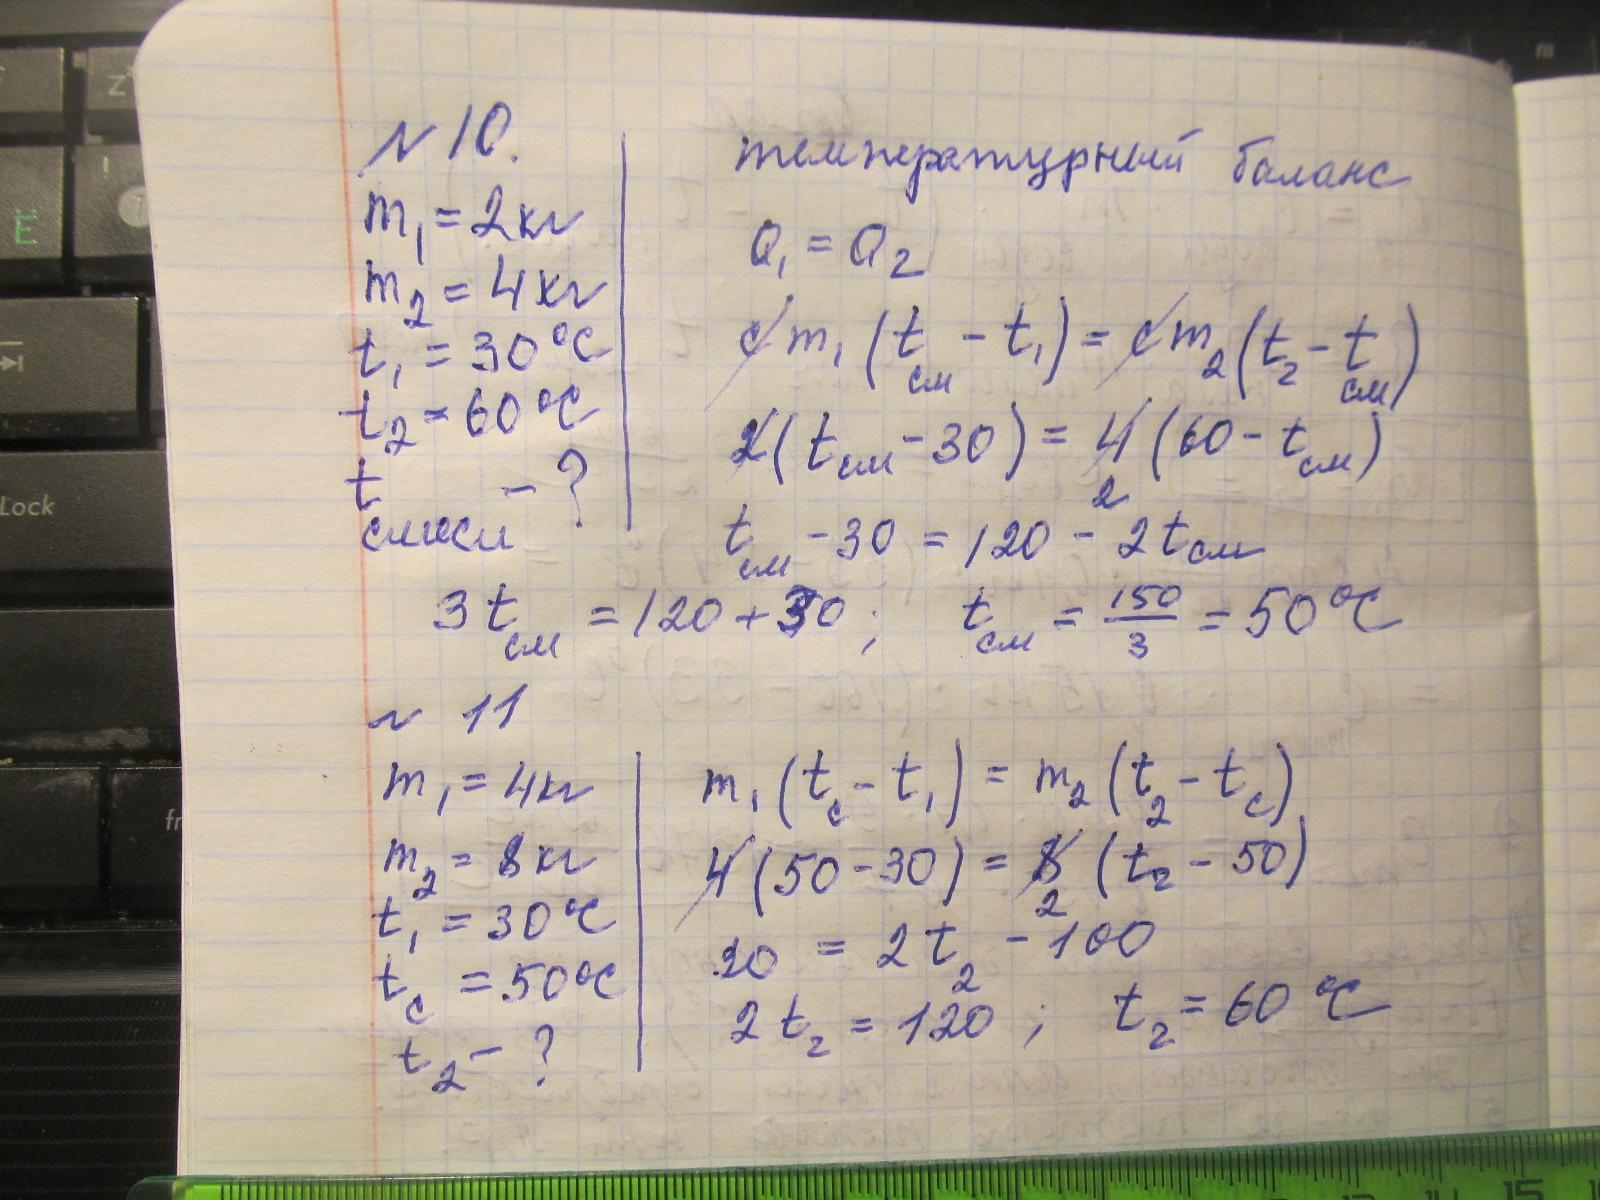 N 10.
m₁ = 2кг
m₂ = 4кг
t₁ = 30°C
t₂ = 60°C
t смеси - ?
температурный баланс
Q₁ = Q₂
c m₁ (t см - t₁) = c m₂ (t₂ - t см)
2 (t см - 30) = 4 2 (60 - t см)
t см - 30 = 120 - 2 t см
3 t см = 120 + 30 ; t см = 150/3 = 50°C
N 11
m₁ = 4кг
m₂ = 8кг
t₁ = 30°C
t c = 50°C
t₂ - ?
m₁ (t c - t₁) = m₂ (t₂ - t c)
4 (50 - 30) = 8 2 (t₂ - 50)
20 = 2 t₂ - 100
2 t₂ = 120 ; t₂ = 60°C
E
Z
Lock
14 15